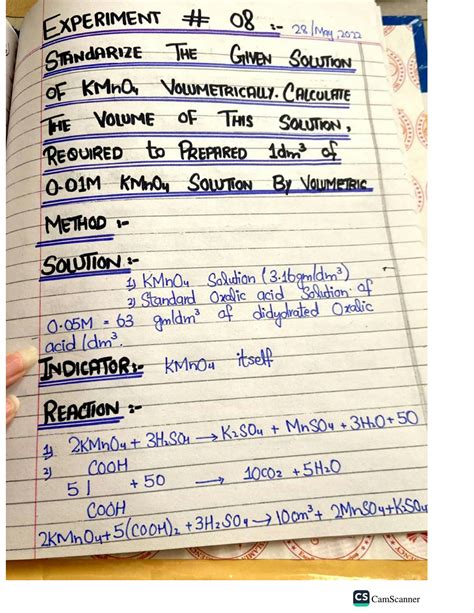 EXPERIMENT # 08 :- 28/May,2022
STANDARIZE THE GIVEN SOLUTION
OF KMnO₄ VOLUMETRICALLY. CALCULATE
THE VOLUME OF THIS SOLUTION,
REQUIRED to PREPARED 1dm³ of
0.01M KMnO₄ SOLUTION BY VOLUMETRIC
METHOD :-
SOLUTION :-
1) KMnO₄ Solution (3.16gm/dm³)
2) Standard Oxalic acid Solution of
0.05M = 63 gm/dm³ of didydrated Oxalic
acid /dm³.
INDICATOR:- KMnO₄ itself
REACTION :-
1) 2KMnO₄ + 3H₂SO₄ → K₂SO₄ + MnSO₄ + 3H₂O + 5O
2) COOH
5 | + 5O → 10CO₂ + 5H₂O
COOH
2KMnO₄+5(COOH)₂ + 3H₂SO₄ → 10cm³ + 2MnSO₄+K₂SO₄
CS CamScanner